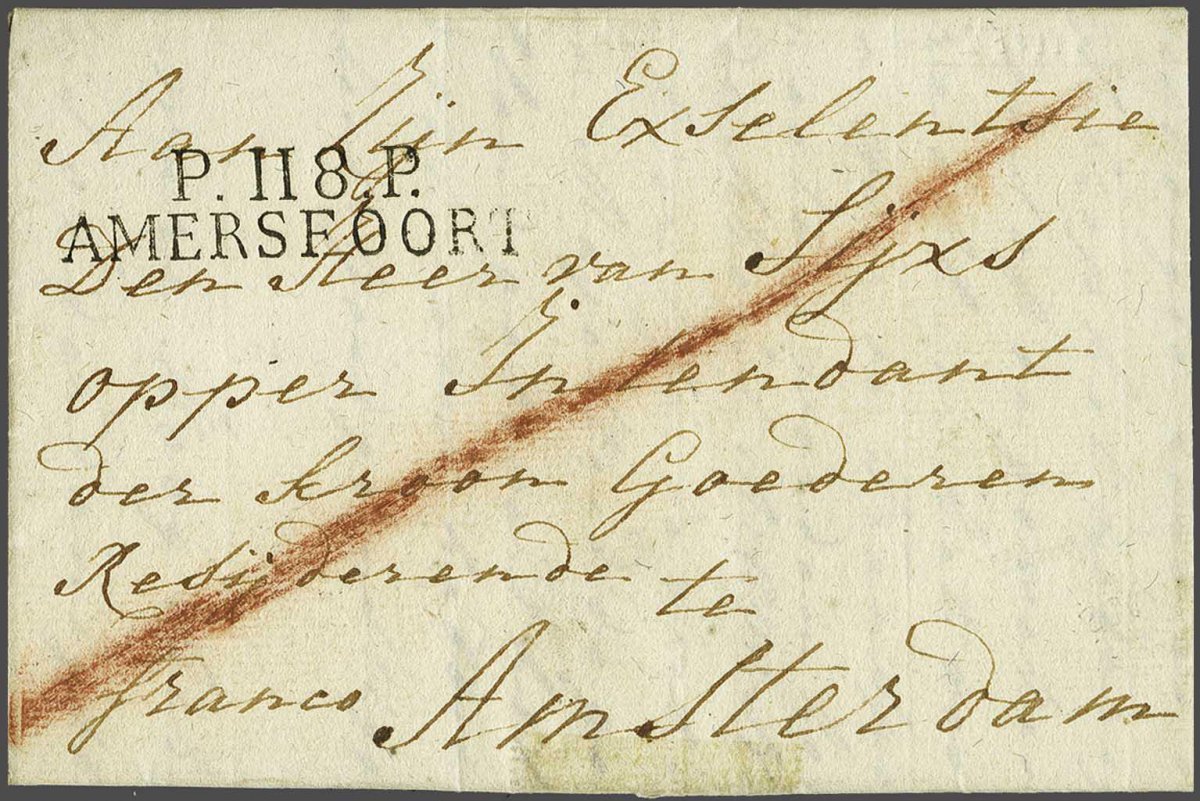 Aan Zijn Exselentsie
P.118.P.
AMERSFOORT
Den Heer van Sijxs
opper Intendant
der kroon Goederen
Resijderende te
franco Amsterdam